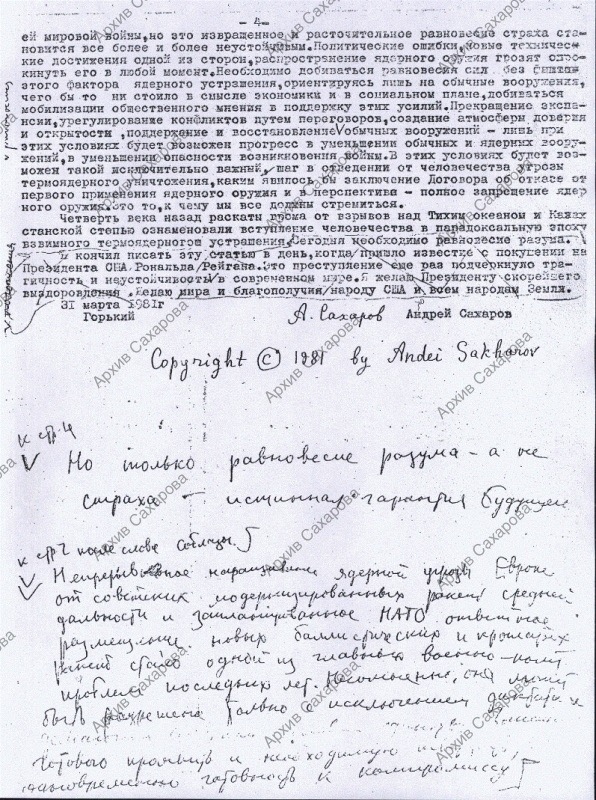 - 4-
ей мировой войны, но это извращенное и расточительное равновесие страха ста-
новится все более и более неустойчивым. Политические ошибки, новые техничес-
кие достижения одной из сторон, распространение ядерного оружия грозят опро-
кинуть его в любой момент. Необходимо добиваться равновесия сил без
этого фактора ядерного устрашения, ориентируясь лишь на обычные вооружения,
чего бы то ни стоило в смысле экономики и в социальном плане, добиваться
мобилизации общественного мнения в поддержку этих усилий. Прекращение экспа-
нсии, урегулирование конфликтов путем переговоров, создание атмосферы доверия
и открытости, поддержание и восстановление обычных вооружений - лишь при
этих условиях будет возможен прогресс в уменьшении обычных и ядерных воору-
жений, в уменьшении опасности возникновения войны. В этих условиях будет воз-
можен такой исключительно важный шаг в отведении от человечества угрозы
термоядерного уничтожения, каким явилось бы заключение Договора об отказе от
первого применения ядерного оружия и в перспективе - полное запрещение ядер
ного оружия. Это то, к чему мы все должны стремиться.
Четверть века назад раскаты грома от взрывов над Тихим океаном и Казах
станской степью ознаменовали вступление человечества в парадоксальную эпоху
взаимного термоядерного устрашения. Сегодня необходимо равновесие разума.
Я кончил писать эту статью в день, когда пришло известие о покушении на
Президента США Рональда Рейгана. Это преступление еще раз подчеркнуло тра-
гичность и неустойчивость в современном мире. Я желаю Президенту скорейшего
выздоровления. Желаю мира и благополучия народу США и всем народам Земли.
31 марта 1981г
Горький А. Сахаров Андрей Сахаров
Copyright © 1981 by Andei Sakharov
к стр 4
V Но только равновесие разума - а не
страха - истинная гарантия будущего
к стр 2 после слова
V Непрерывное наращивание ядерной угрозы Европе
от советских модернизированных ракет средней
дальности и запланированное НАТО ответное
размещение новых баллистических и крылатых
ракет стало одной из главных военно-полит
проблем последних лет. Несомненно, она может
быть разрешена только с исключением
готового
одновременно готовность к компромиссу
Архив Сахарова